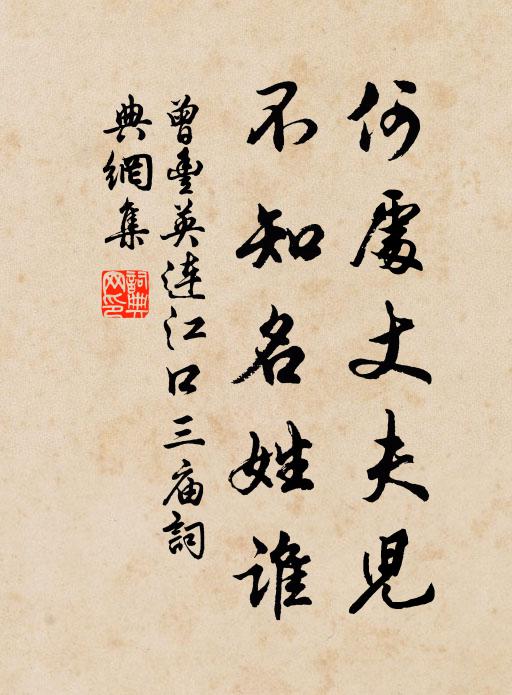 何處丈夫兒
不知名姓誰
曾豐英連江口三庙詞
典網集
詞典网印